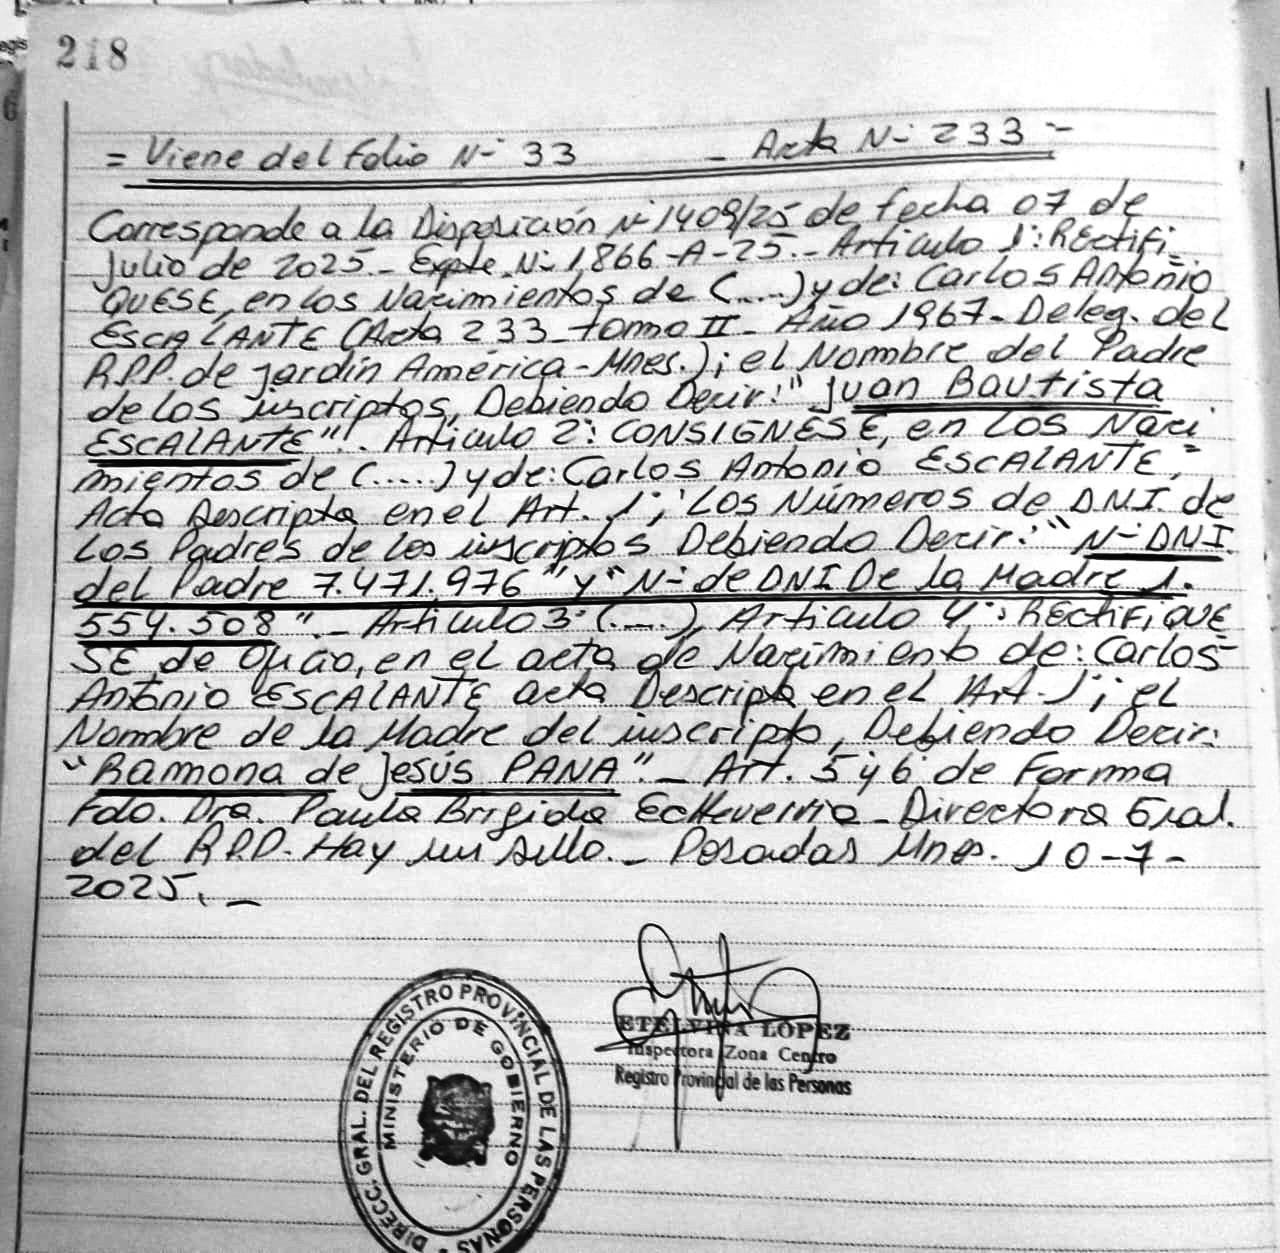 218
= Viene del Folio N- 33 - Acta N- 233 -
Corresponde a la Disposición N- 1409/25 de fecha 07 de
Julio de 2025.- Expte. N- 1866-A-25.- Articulo 1°: REctifi-
QUESE, en los Nacimientos de (.....) y de: Carlos Antonio
ESCALANTE (Acta 233 - tomo II - Año 1967 - Deleg. del
R.P.P. de Jardín América - Mnes.); el Nombre del Padre
de los inscriptos, Debiendo Decir: "Juan Bautista
ESCALANTE". Articulo 2°: CONSIGNESE, en Los Naci
mientos de (.....) y de: Carlos Antonio ESCALANTE,
Acta Descripta en el Art. 1°; Los Números de D.N.I. de
Los Padres de los inscriptos Debiendo Decir: "N- DNI.
del Padre 7.471.976 "y" N- de DNI De la Madre 1.
554.508".- Articulo 3° (.....), Articulo 4°: REctifiQUE
SE de Oficio, en el acta de Nacimiento de: Carlos
Antonio ESCALANTE acta Descripta en el Art. 1°; el
Nombre de la Madre del inscripto, Debiendo Decir:
"Ramona de Jesús PANA".- Art. 5 y 6 de Forma
Fdo. Dra. Paula Brigida Echeverria - Directora Gral.
del R.P.P. - Hay un sello.- Posadas Mnes. 10-7-
2025.-
DIRECC. GRAL. DEL REGISTRO PROVINCIAL DE LAS PERSONAS
MINISTERIO DE GOBIERNO
ETELVINA LOPEZ
Inspectora Zona Centro
Registro Provincial de las Personas